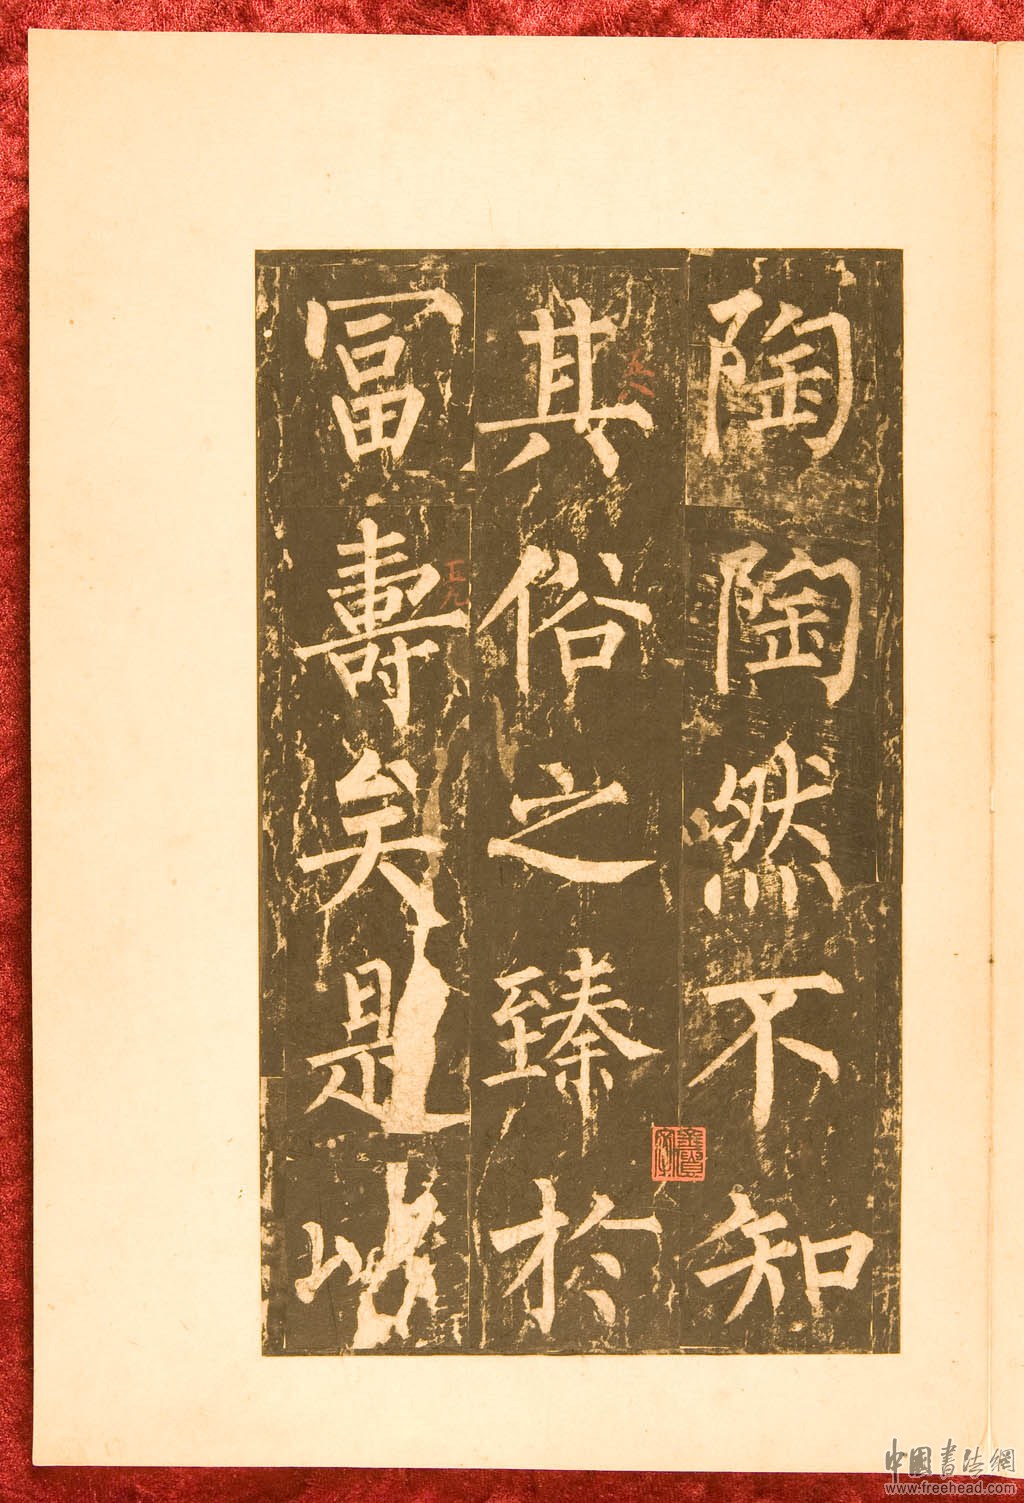 陶陶然不知
其俗之臻於
冨壽矣是以
五八
五九
中国书法網
www.freehead.com